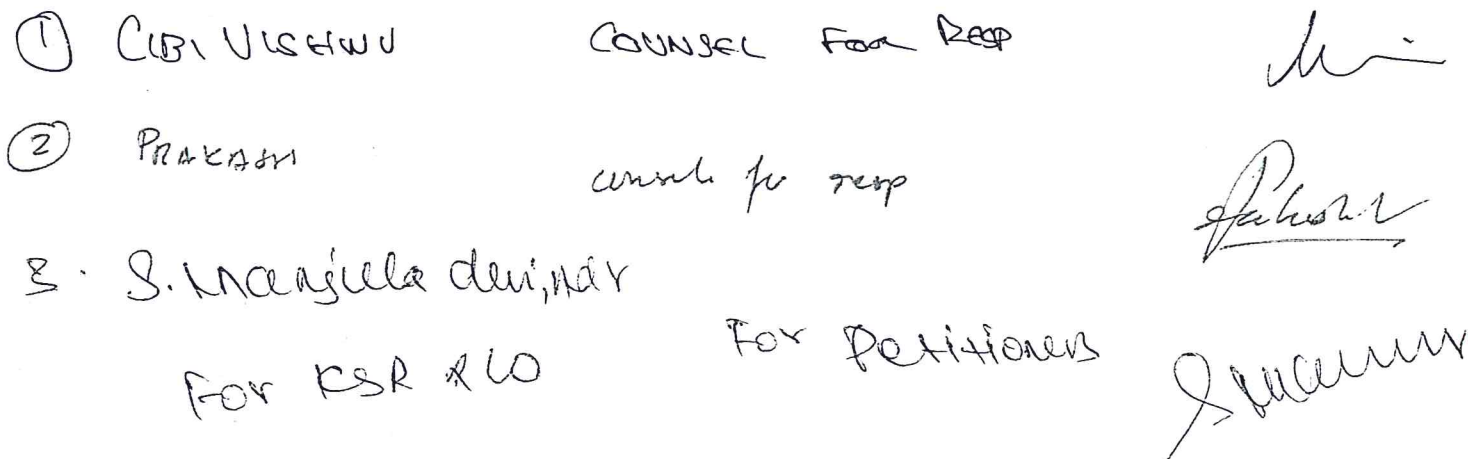 ① CIBI VISHNU COUNSEL FOR RESP
② PRAKASH counsel for resp
3. S. Manjula devi, Adv For Petitioners
For KSR & CO